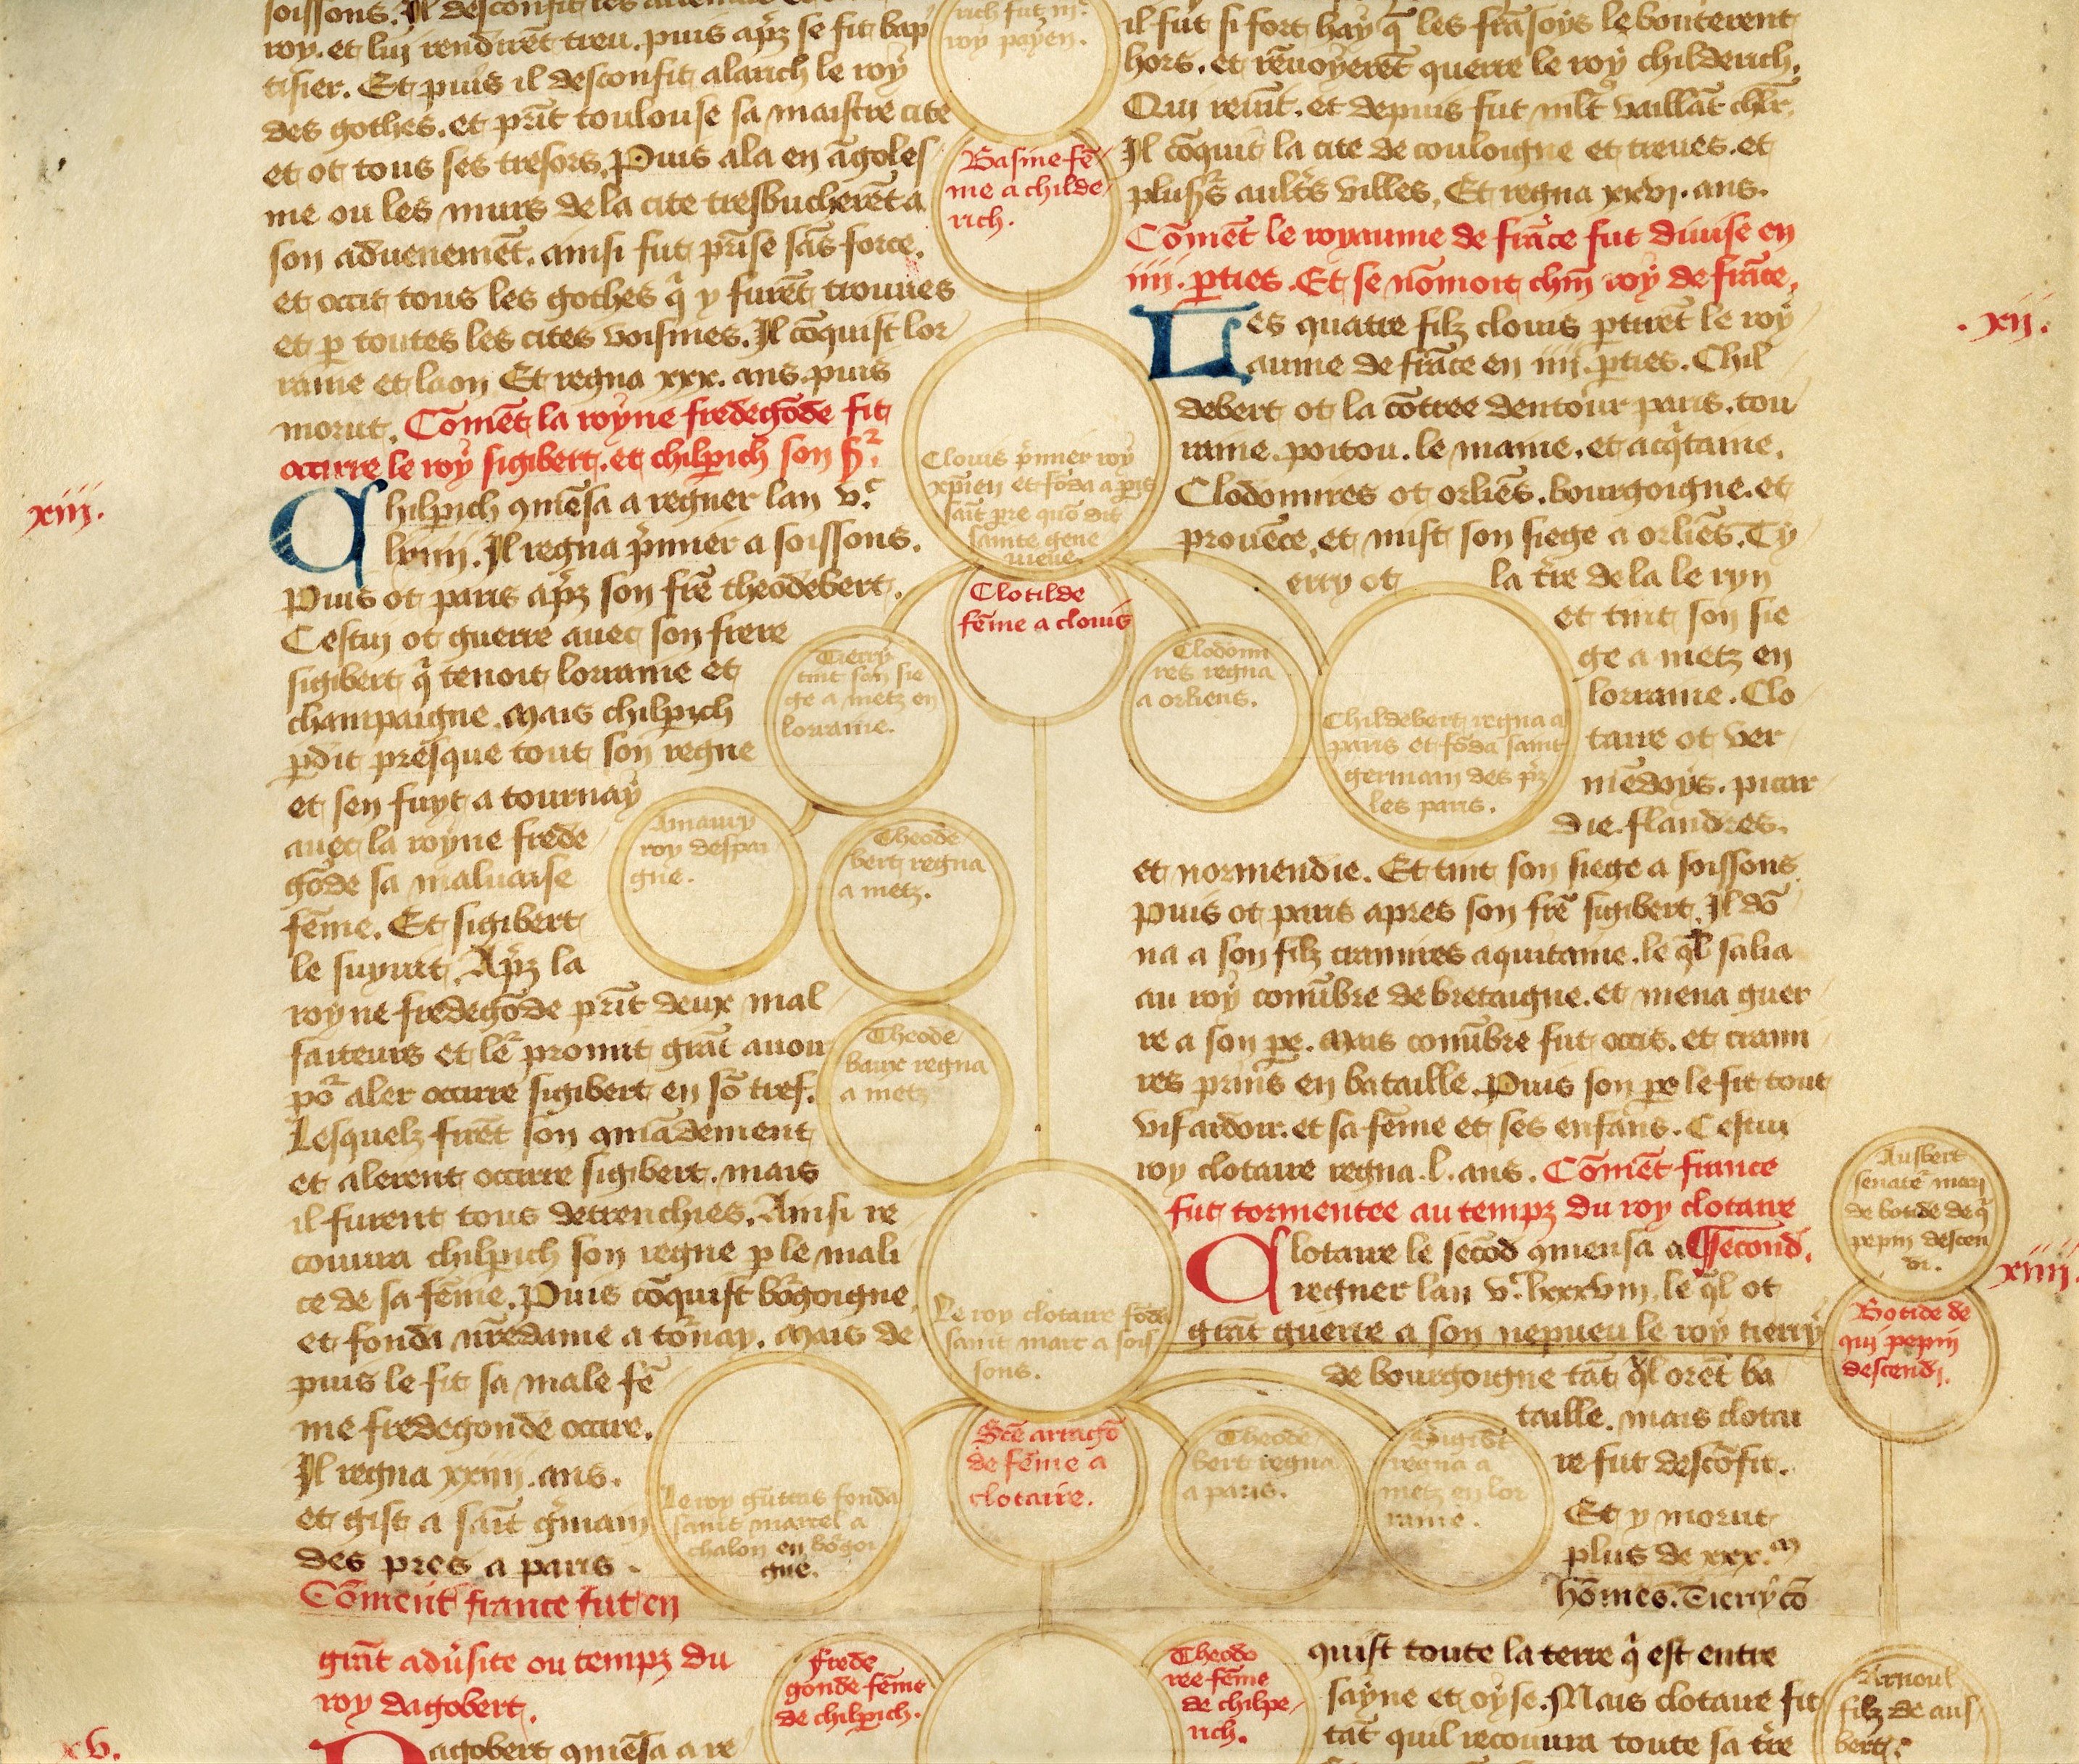 roy. et lui rendirēt treu. puis ap̄z se fit bap
tisier. Et puis il desconfit alarich le roy
des gothes. et prīt toulouse sa maistre cite
et ot tous ses tresors. Puis ala en āgoles
me ou les murs de la cite tresbucherēt a
son advenemēt. ainsi fut prīse sās force.
et occit tous les gothes q̄ y furēt trouues
et p̄ toutes les cites voisines. Il cōquist lor
raine et laon Et regna xxx. ans. puis
morut. Comēt la royne fredegōde fit
occirre le roy sigibert. et chilperich son
xiii.
Chilperich 9mēsa a regner lan v.c
lxviii. Il regna p̄mier a soissons.
Puis ot paris ap̄z son frē theodebert.
Cestui ot guerre avec son frere
sigibert q̄ tenoit lorraine et
champaigne. Mais chilperich
p̄dit presque tout son regne
et sen fuyt a tournay
avec la royne frede
gōde sa maluaise
fēme. Et sigibert
le suyuit. Ap̄z la
royne fredegōde prīt deux mal
faiteurs et lē promit grāt auoir
po2 aler occirre sigibert en sō tref.
Lesquelz firēt son 9māde­ment
et alerent occirre sigibert. mais
il furent tous detrenchies. Ainsi re
couura chilperich son regne p̄ le mali
ce de sa fēme. Puis cōquist bo2goigne
et fonda nr̄edame a to2nay. Mais de
puis le fit sa male fē
me fredegonde occire.
Il regna xxiiii. ans.
et gist a saīt ḡmain
des pres a paris.
Cōment france fut en
grāt adūsite ou tempz du
roy dagobert.
xv.
Dagobert 9mēsa a re
rich fut
roy payen.
Basine fē
me a childe
rich.
Clouis p̄mier roy
xp̄ien et fōda a p̄is
saīt p̄re quō dit
sainte gene
uieue.
Clotilde
fēme a clouis
Tierry
tint son sie
ge a metz en
lorraine.
Clodomi
res regna
a orliens.
Childebert regna a
paris et fōda saint
germain des p̄z
les paris.
Amaury
roy despai
gne.
Theode
bert regna
a metz.
Theode
baux regna
a metz
Le roy clotaire fōda
saint marc a sois
sons.
Le roy gūtras fonda
saint marcel a
chalon en bo2goi
gne.
Scē arragō
de fēme a
clotaire.
Theode
bert regna
a paris.
Sigib̄t
regna a
metz en lor
raine.
Frede
gonde fēme
de chilperich.
Theodo
ree fēme
de chilpe
rich.
il fut si fort hay q̄ les frāsoys le bouterent
hors. et rēuoyerēt querre le roy childerich.
Qui reuīt. et depuis fut mlt vaillāt chlr̄.
Il cōquit la cite de couloigne et treues. et
plus̄rs ault̄s villes. Et regna xxvi. ans.
Cōmēt le royaume de frāce fut diuise en
iiii. p̄ties. Et se nōmoit chūn roy de frāce.
.xii.
Les quatre filz clouis p̄tirēt le roy
aume de frāce en iiii. p̄ties. Chil
debert ot la cōtree dentour paris. tou
raine. poitou. le maine. et acq̄taine.
Clodomires ot orliēs. bourgoigne. et
prouēce. et mist son siege a orliēs. Ty
erry ot la t̄re dela le ryn
et tint son sie
ge a metz en
lorraine. Clo
taire ot ver
mēdoys. picar
die. flandres.
et normendie. Et tint son siege a soissons
Puis ot paris apres son frē sigibert. Il dō
na a son filz cramires aquitaine. le q̄l salia
au roy conūbre de bretaigne. et mena guer
re a son pe. Mais conūbre fut occis. et crami
res prīns en bataille. Puis son pe le fit tout
vif ardoir. et sa fēme et ses enfans. Cestui
roy clotaire regna .l. ans. Cōmēt france
fut tormentee au tempz du roy clotaire
second.
xiiii.
Clotaire le secōd 9mensa a
regner lan v.c lxxxviii. le q̄l ot
grāt guerre a son nepueu le roy tierry
de bourgoigne tāt q̄l orēt ba
taille. mais clotai
re fut descōfit.
Et y morut
plus de xxx.m
hōmes. Tierry cō
quist toute la terre q̄ est entre
sayne et oyse. Mais clotaire fit
tāt quil recouura toute sa t̄re
Ausbert
senate2 mari
de botide de q̄
pepin descen
di.
Botide de
qui pepin
descendi.
Arnoul
filz de aus
bert.